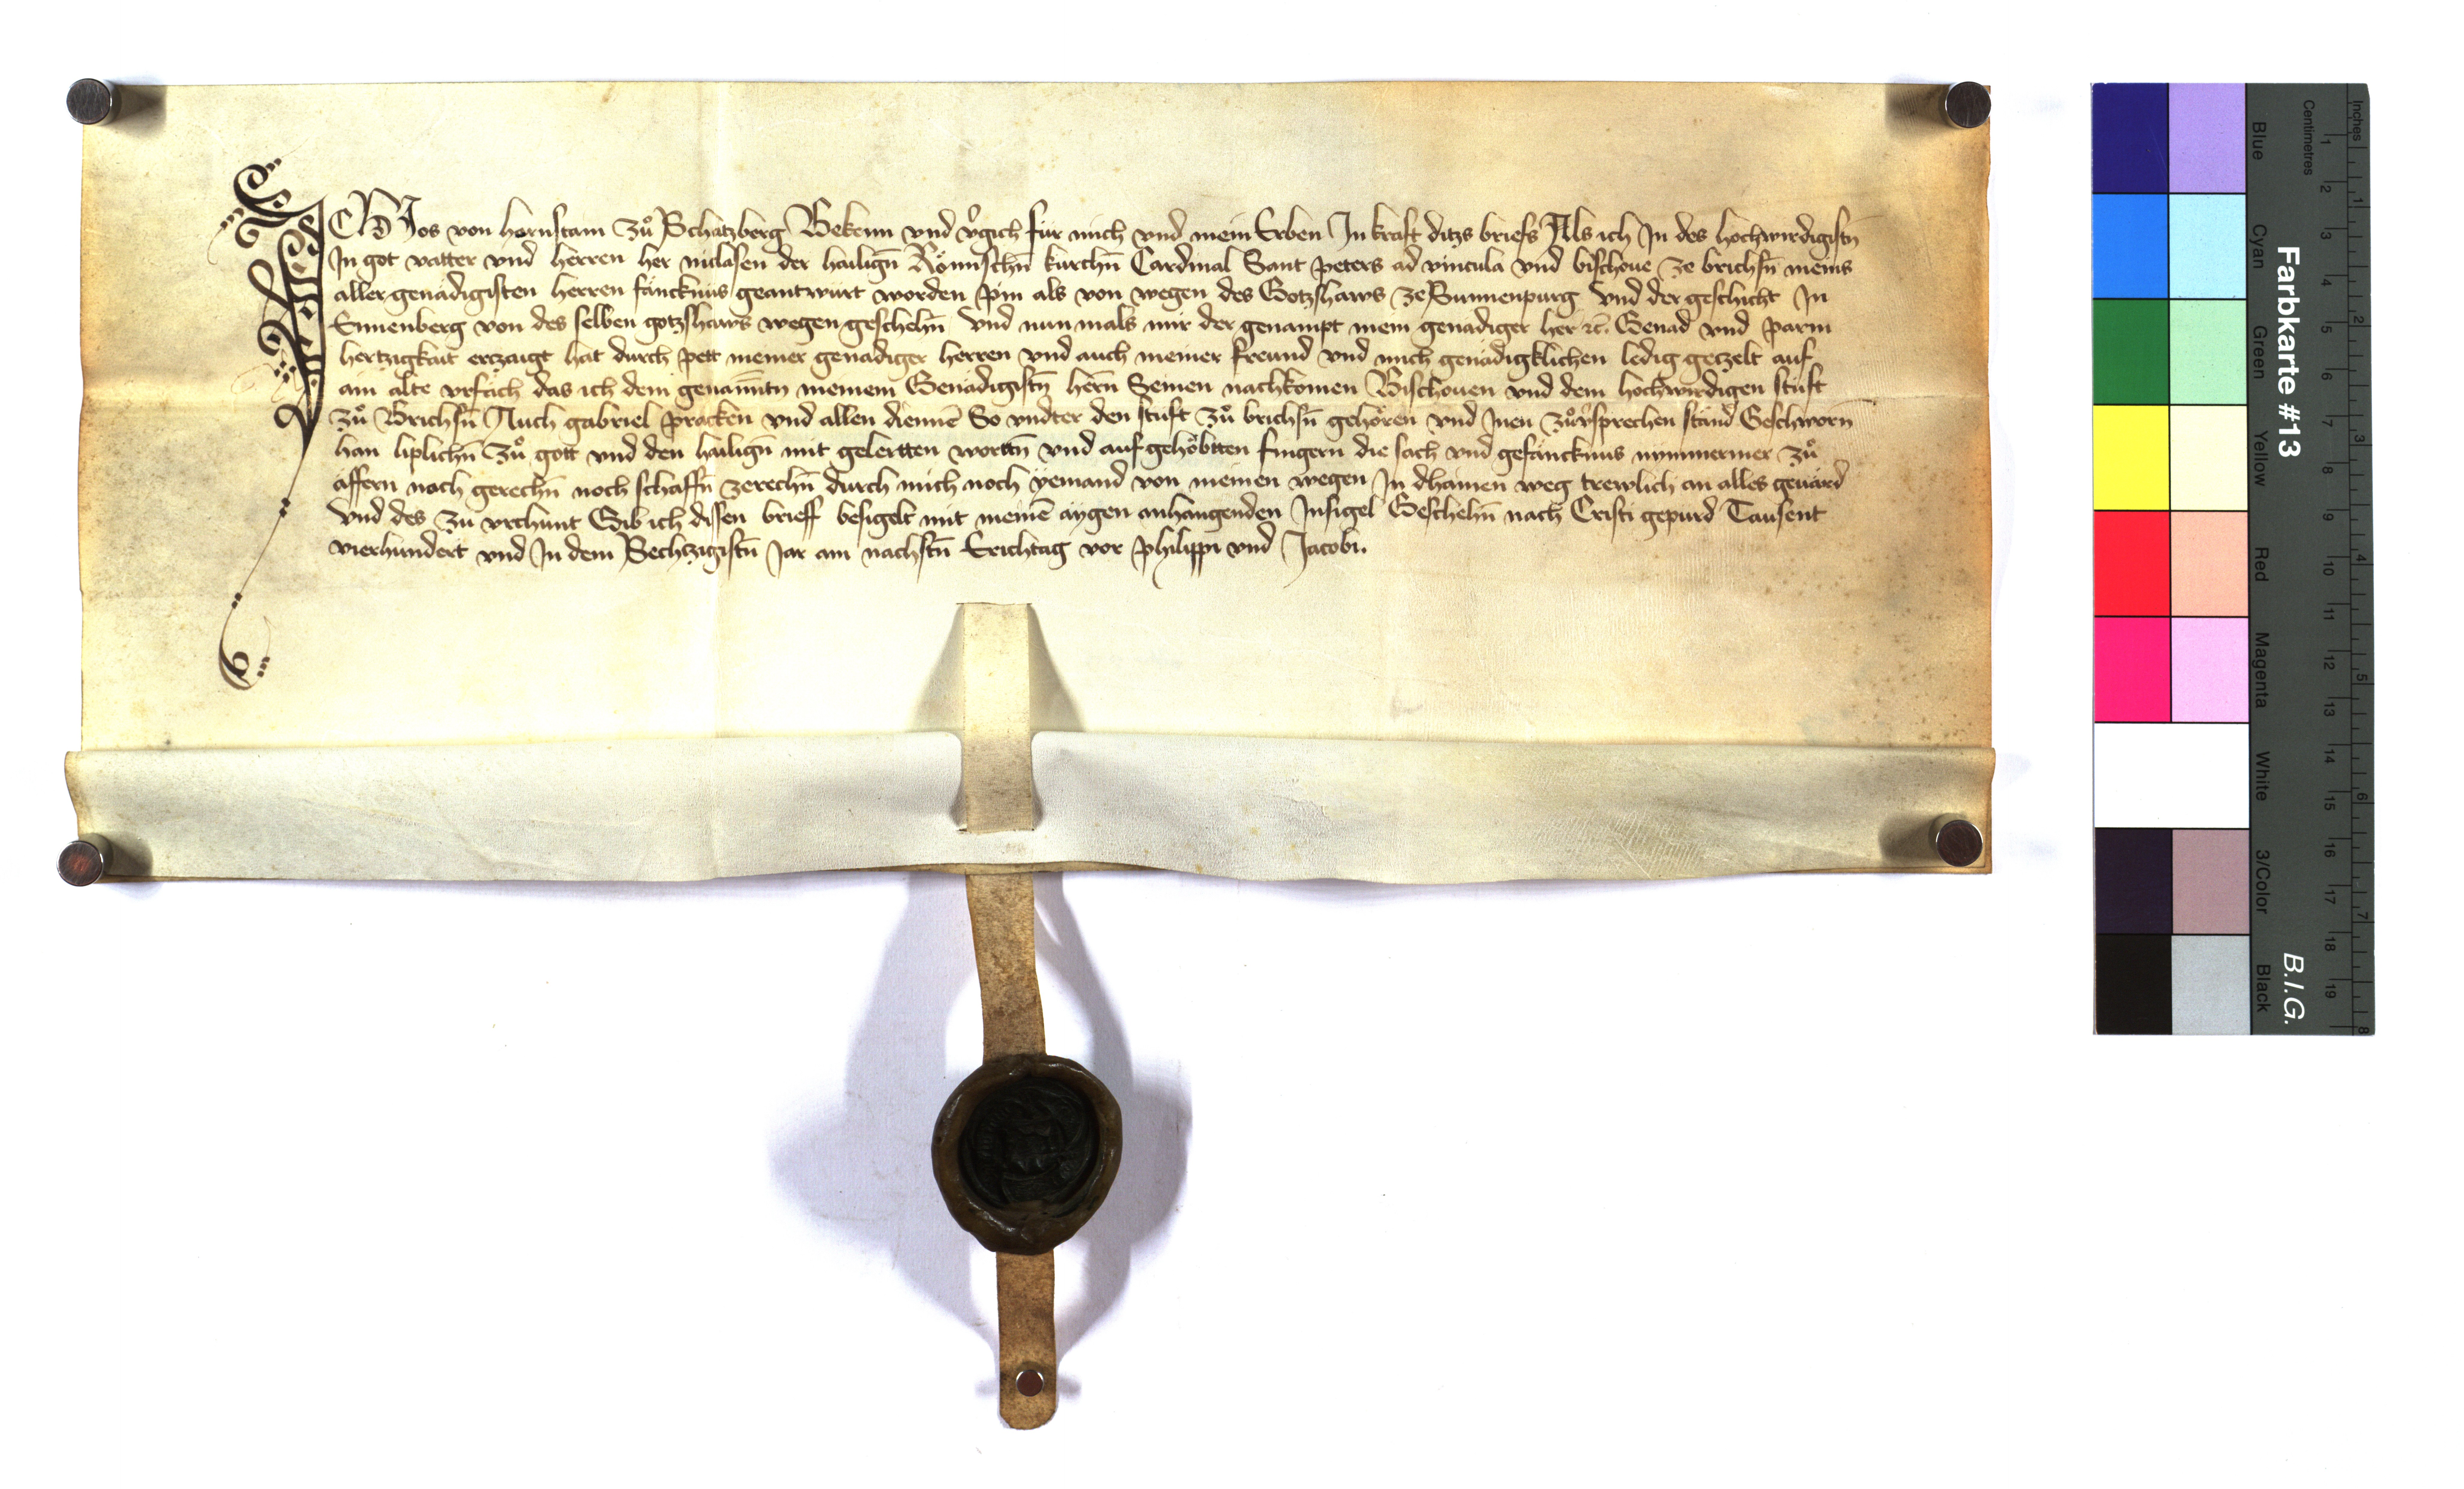 ICH Jos von hornstain zuͦ Schatzberg Bekenn vnd vͬgich für mich vnd mein Erben In kraft ditzs briefs Als ich In des hochwirdigistn̄
In got vatter vnd herren her niclasen der hailign̄ Römischn̄ kirchn̄ Cardinal Sant peters ad vincula vnd bischoue ze brichsn̄ meins
aller genädigisten herren fäncknüs geantwürt worden pin als von wegen des Gotzshaws ze Sunnenpurg Vnd der geschicht In
Ennenberg von des selben gotzshaws wegen geschehn̄ Vnd nun mals mir der genampt mein genädiger her ꝛc̄. Genad vnd parm
hertzigkait erczaigt hat durch pett meiner genadiger herren vnd auch meiner freund vnd mich genädigklichen ledig geczelt auf
ain alte vrfäch das ich dem genan̄ntn meinem Genädigistn̄ hern̄ Seinen nachkomen Bischouen vnd dem hochwirdigen stift
zuͦ Brichsn̄ Auch gabriel pracken vnd allen diennē So vndter den stift zuͦ brichsn̄ gehören vnd Inen zuͦuͬsprechen ständ Geschworn̄
han liplichn̄ Zuͦ gott vnd den hailign̄ mit gelertten wortn̄ vnd aufgehöbtten fingern die sach vnd gefäncknus nymmermer zuͦ
äffern noch gerechn̄ noch schaffn̄ zerechn̄ durch mich noch yemand von meinen wegen In dhainen weg trewlich an alles geuärd
Vnd des zu vrchunt Gib ich dissen brieff besigelt mit meinē äygen anhangenden Insigel Geschehn̄ nach Cristi gepurd Tausent
vierhundert vnd In dem Sechzigistn̄ Jar am nachstn̄ Erichtag vor philippi vnd Jacobi.
Farbkarte #13
B.I.G.
Blue
Cyan
Green
Yellow
Red
Magenta
White
3/Color
Black
Centimetres
1 2 3 4 5 6 7 8 9 10 11 12 13 14 15 16 17 18 19
Inches
1 2 3 4 5 6 7 8